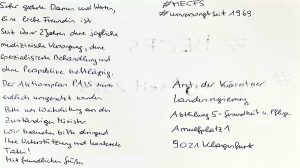 Sehr geehrte Damen und Herren,
Eine liebe Freundin ist
seit über 2 Jahren ohne jegliche
medizinische Versorgung, ohne
spezialisierte Behandlung und
ohne Perspektive bettlägrig.
Der Aktionsplan PAIS muss
endlich umgesetzt werden.
Bitte um Weiterleitung an den
Zuständigen Minister.
Wir brauchen bitte dringend
Ihre Unterstützung und konkrete
Taten!
Mit freundlichen Grüßen
#MECFS
#unversorgt seit 1969
An: der Kärntner
Landesregierung
Abteilung 5 - Gesundheit u. Pflege
Arnulfplatz 1
9021 Klagenfurt